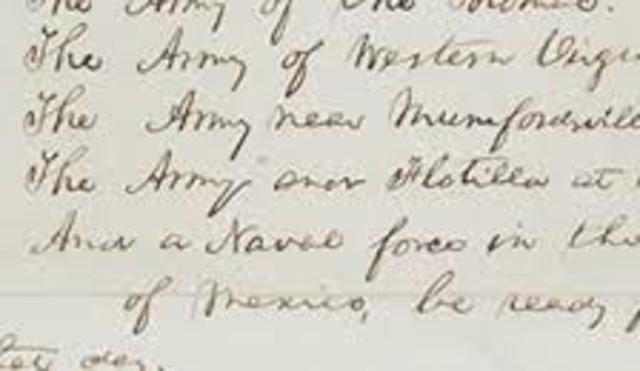 The Army of the Potomac.
The Army of Western Virgi
The Army near Munfordvill
The Army and Flotilla at
And a Naval force in the
of Mexico, be ready
day.